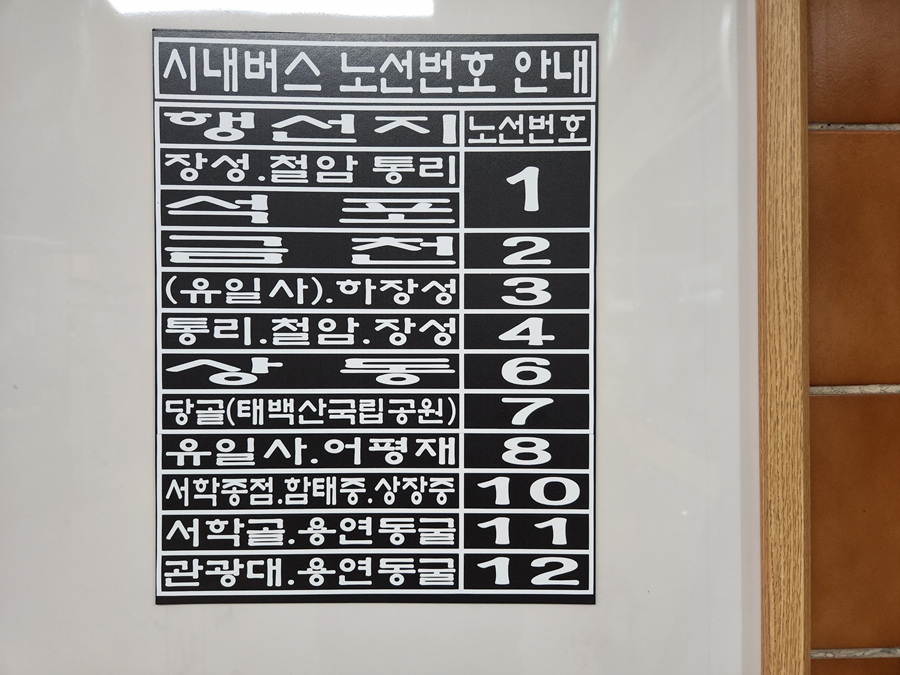 시내버스 노선번호 안내
행선지 노선번호
장성.철암 통리 1
석포
금천 2
(유일사).하장성 3
통리.철암.장성 4
상동 6
당골(태백산국립공원) 7
유일사.어평재 8
서학종점.함태중.상장중 10
서학골.용연동굴 11
관광대.용연동굴 12